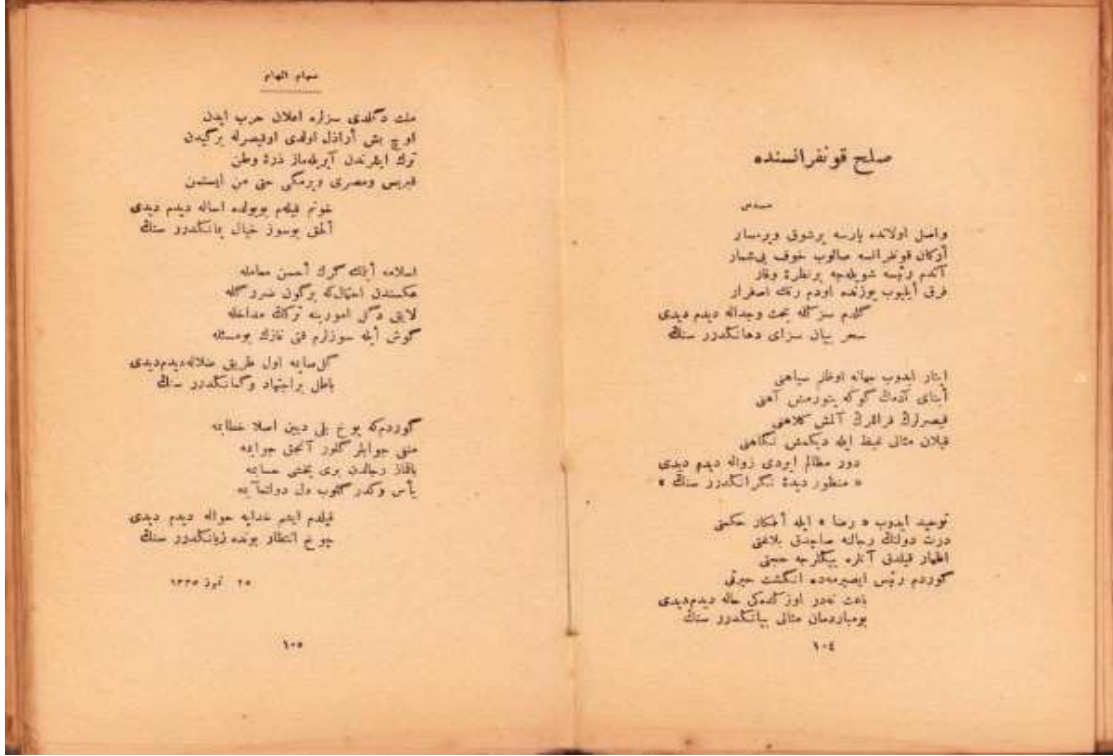 صلح قونفرانسنده
مسدس
واصل اولانده پارسه پرشوق وبرمسار
أركان قونفرانسه صالوب خوف بی‌شمار
آتدم رئیسه شویله‌جه برنظرهٔ وقار
فرق أیلیوب یوزنده اودم رنك اصفرار
گلدم سزكله بحث وجداله دیدم دیدی
سحر بیان سزای دهانكدرر سنك
ایثار ایدوب جهانه اوظلم سیاهنی
أبنای آدمك گوكه یتورمش آهنی
قیصرلرك قراللرك آلمش كلاهنی
قپلان مثالی غیظ ایله دیكمش نگاهنی
دور مظالم ایردی زواله دیدم دیدی
« منظور دیدهٔ نگرانكدرر سنك »
توحید ایدوب « رضا » ایله أفكار حكمتی
درت دولتك رجالنه صاچدق بلاغتی
اظهار قیلدق آنلره بیكلرجه حجتی
گوردم رئیس ایصیرمه‌ده انگشت حیرتی
باعث نه‌در اوزكده‌كی حاله دیدم‌دیدی
بومباردمان مثالی بیانكدرر سنك
١٠٤
سهام الهام
ملت دگلدی سزلره اعلان حرب ایدن
اوچ بش أراذل اولدی اوقیصرله برگیدن
ترك ایلرندن آیریله‌ماز ذرهٔ وطن
قبریس ومصری ویرمكی حتی من ایستمن
خونم قیلهم بویولده اساله دیدم دیدی
آلمق بوسوز خیال یمانكدرر سنك
اسلامه أیله‌ك گرك أحسن معامله
عكسندن احتمال‌كه برگون ضرر گله
لایق دگل امورینه تركك مداخله
گوش أیله سوزلرم قتی نازك بومسئله
گل‌صاپمه اول طریق ضلاله‌دیدم‌دیدی
باطل براجتهاد وگمانكدرر سنك
گوردم‌كه یوخ بلی دیین اصلا خطابمه
منفی جوابلر گلور آنجق جوابمه
باقماز رجالدن بری یخشی حسابمه
یأس وكدر گلوب دل دولتمآبمه
قیلدم ایشم خدایه حواله دیدم دیدی
چوخ انتظار بونده زیانكدرر سنك
٢٥ تموز ١٣٣٥
١٠٥